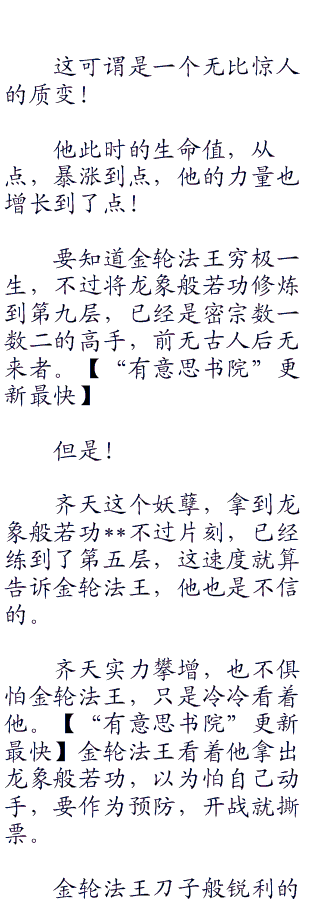 这可谓是一个无比惊人
的质变！
他此时的生命值，从
点，暴涨到点，他的力量也
增长到了点！
要知道金轮法王穷极一
生，不过将龙象般若功修炼
到第九层，已经是密宗数一
数二的高手，前无古人后无
来者。【“有意思书院”更
新最快】
但是！
齐天这个妖孽，拿到龙
象般若功**不过片刻，已经
练到了第五层，这速度就算
告诉金轮法王，他也是不信
的。
齐天实力攀增，也不俱
怕金轮法王，只是冷冷看着
他。【“有意思书院”更新
最快】金轮法王看着他拿出
龙象般若功，以为怕自己动
手，要作为预防，开战就撕
票。
金轮法王刀子般锐利的